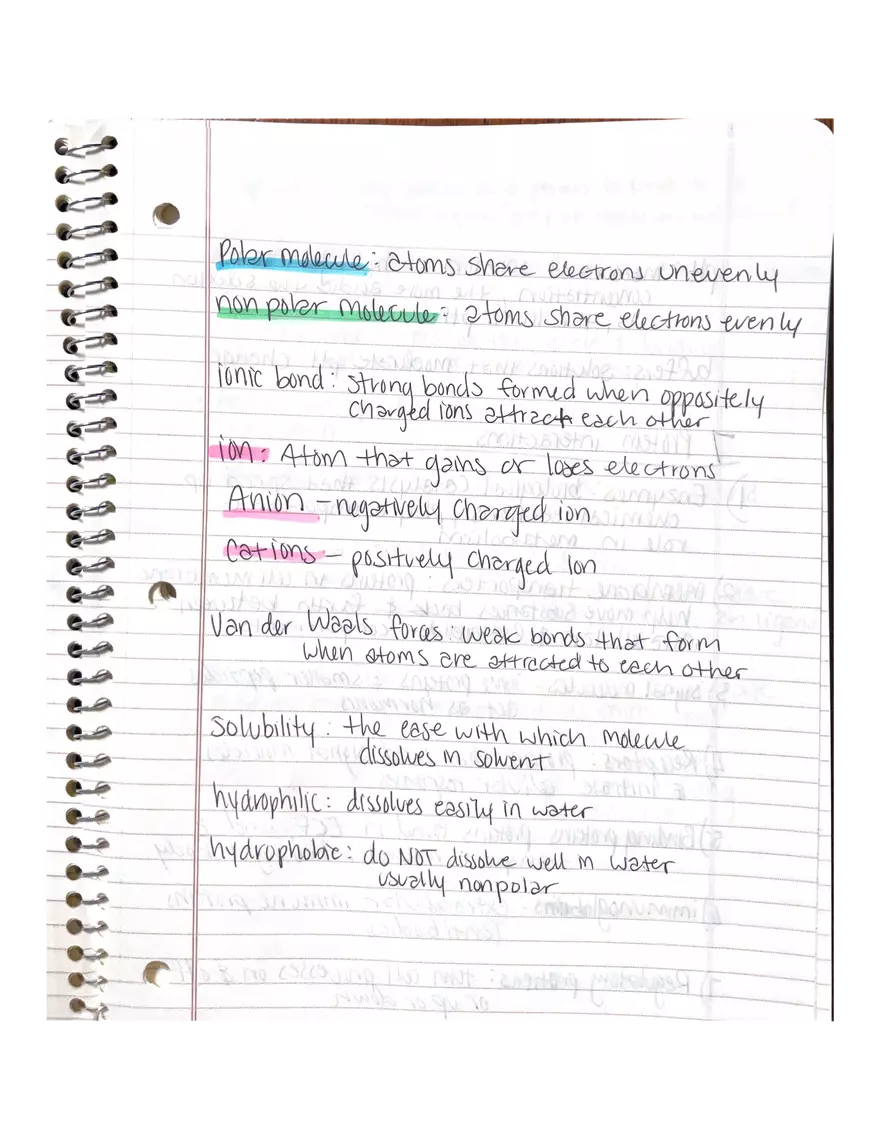 Polar molecule: atoms share electrons unevenly
non polar molecule: atoms share electrons evenly
ionic bond: strong bonds formed when oppositely
charged ions attract each other
ion: Atom that gains or loses electrons
Anion - negatively charged ion
Cations - positively charged ion
Van der Waals forces: weak bonds that form
when atoms are attracted to each other
Solubility: the ease with which molecule
dissolves in solvent
hydrophilic: dissolves easily in water
hydrophobic: do NOT dissolve well in water
usually nonpolar